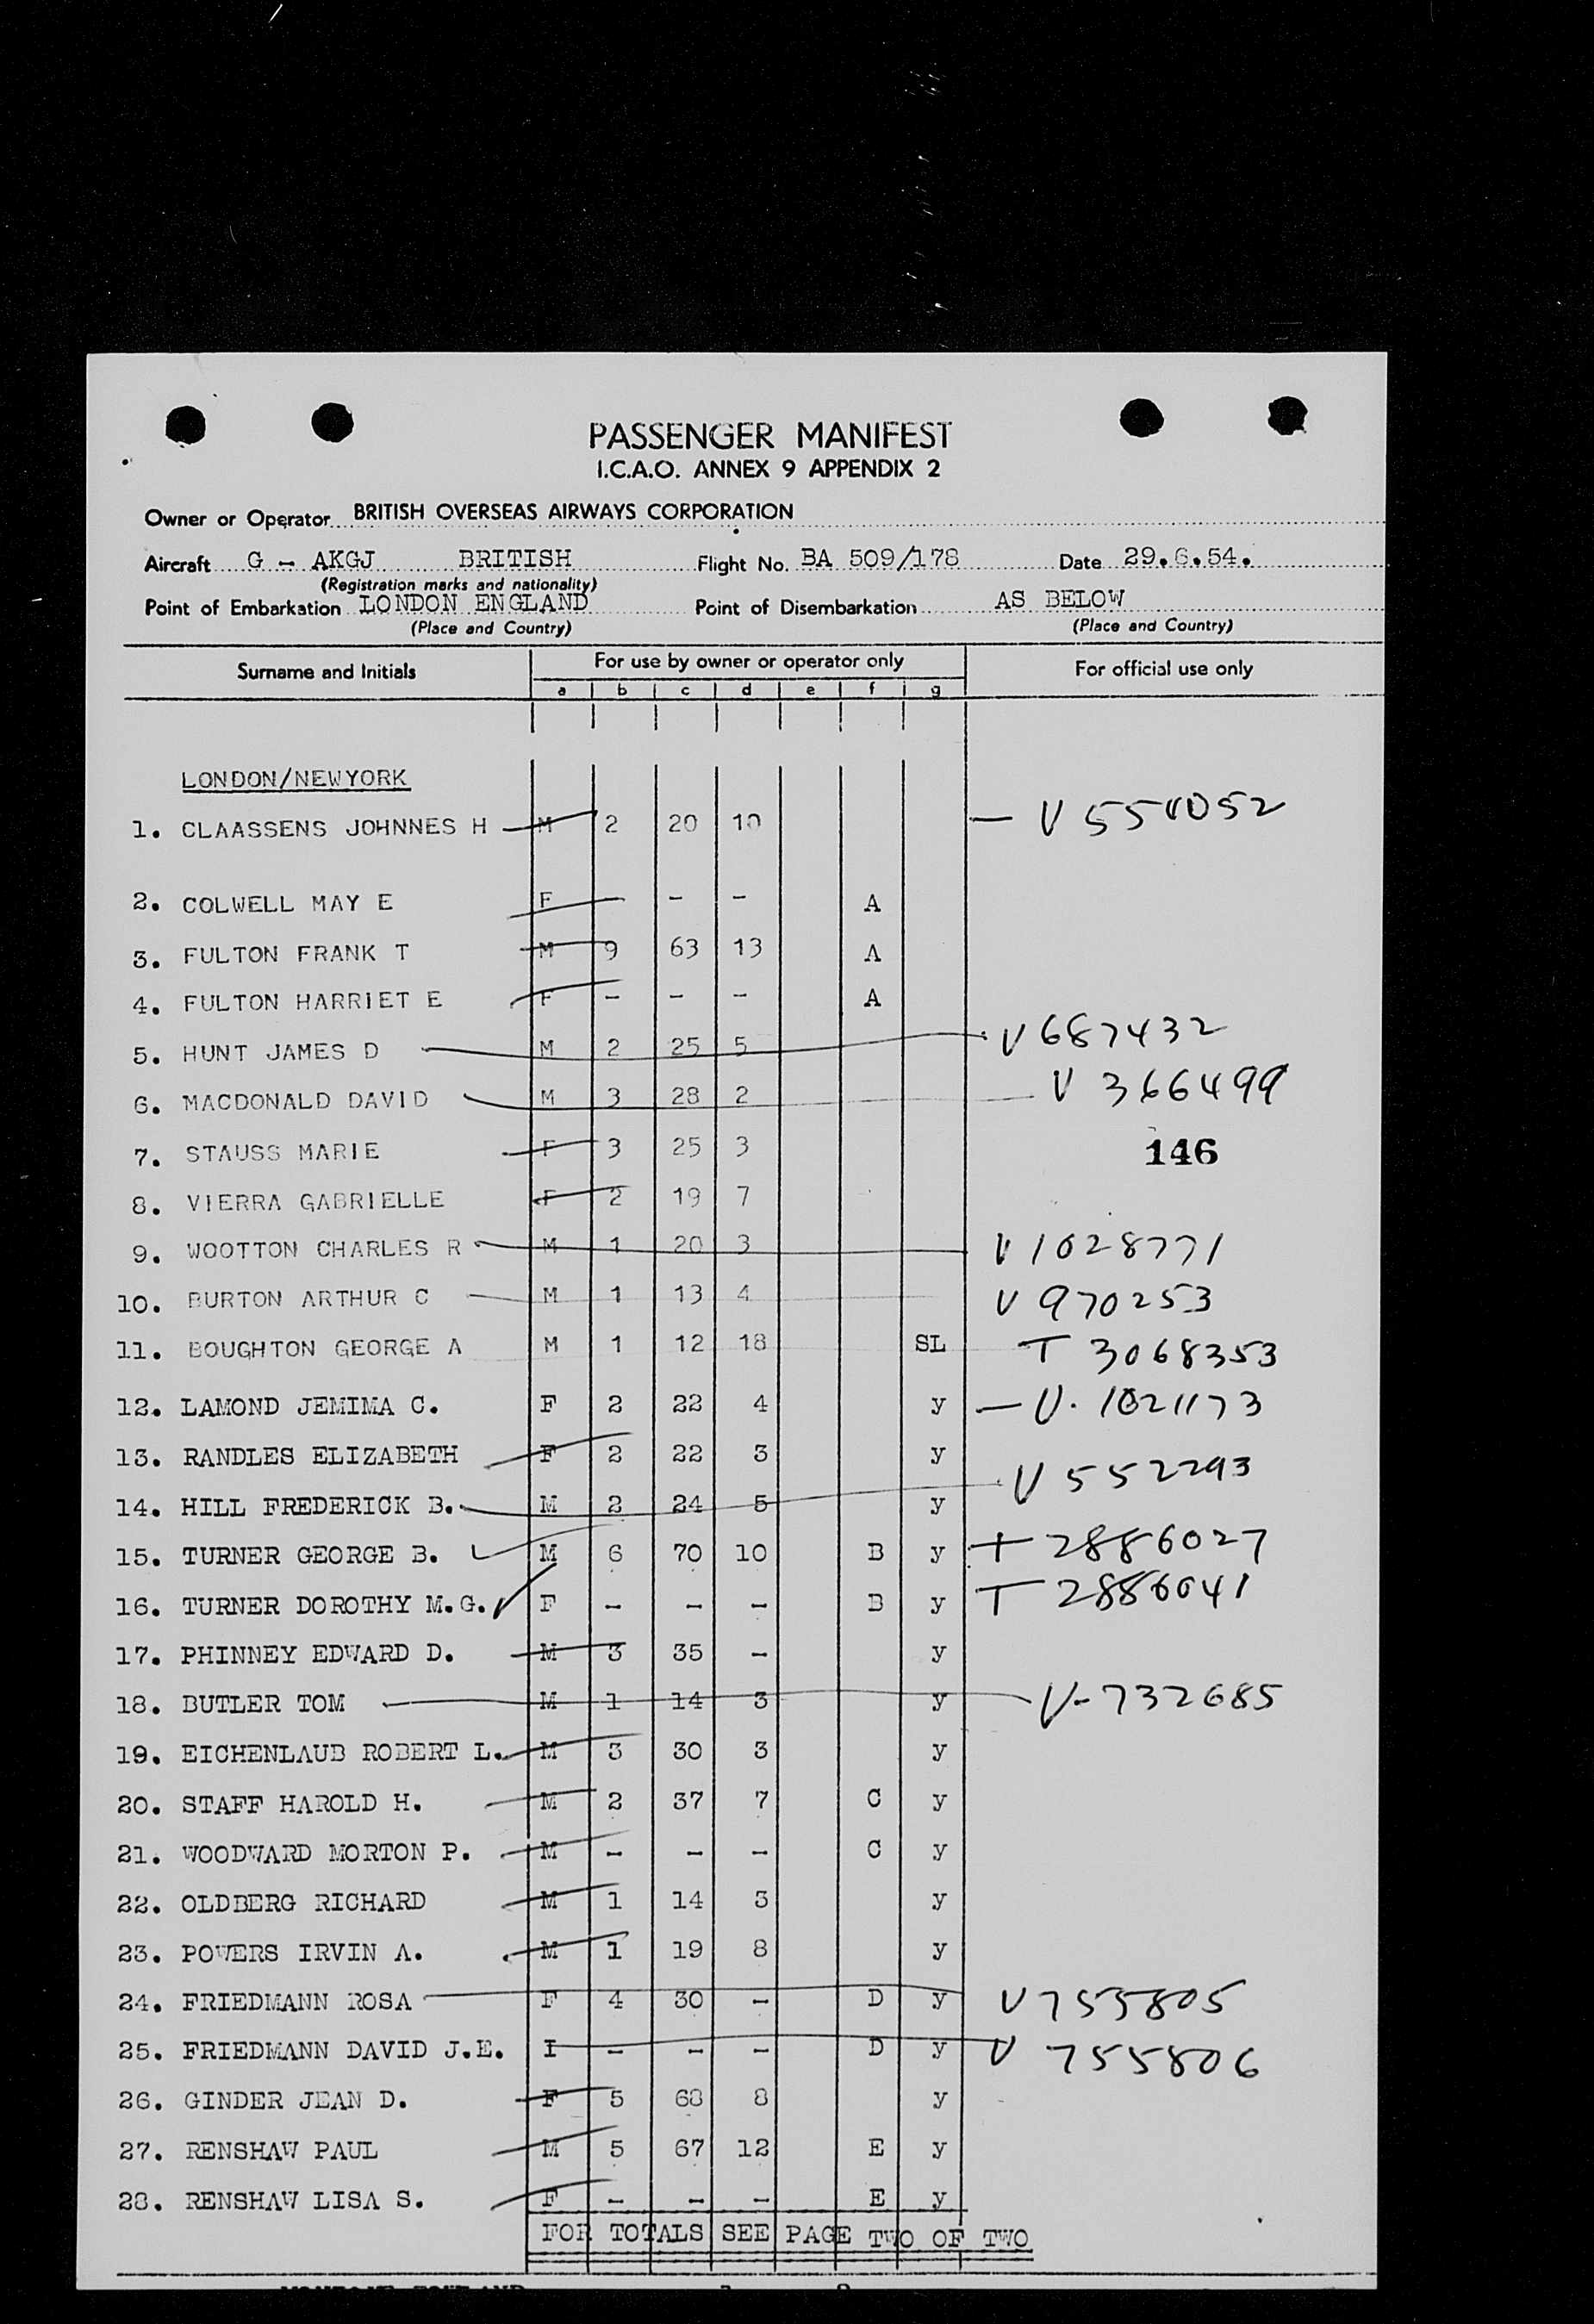 PASSENGER MANIFEST
I.C.A.O. ANNEX 9 APPENDIX 2
Owner or Operator BRITISH OVERSEAS AIRWAYS CORPORATION
Aircraft G - AKGJ BRITISH Flight No. BA 509/178 Date 29.6.54.
(Registration marks and nationality)
Point of Embarkation LONDON ENGLAND Point of Disembarkation AS BELOW
(Place and Country) (Place and Country)
Surname and Initials For use by owner or operator only For official use only
a b c d e f g
LONDON/NEWYORK
1. CLAASSENS JOHNNES H M 2 20 10 — V
2. COLWELL MAY E F — - - A
3. FULTON FRANK T M 9 63 13 A
4. FULTON HARRIET E F - - - A
5. HUNT JAMES D M 2 25 5 V 687432
6. MACDONALD DAVID M 3 28 2 V 366499
7. STAUSS MARIE F 3 25 3 146
8. VIERRA GABRIELLE F 2 19 7
9. WOOTTON CHARLES R M 1 20 3 V 1028771
10. BURTON ARTHUR C M 1 13 4 V 970253
11. BOUGHTON GEORGE A M 1 12 18 SL T 3068353
12. LAMOND JEMIMA C. F 2 22 4 y — V. 1021173
13. RANDLES ELIZABETH F 2 22 3 y
14. HILL FREDERICK B. M 2 24 5 y V 552293
15. TURNER GEORGE B. M 6 70 10 B y T 2886027
16. TURNER DOROTHY M.G. F - - - B y T 2886041
17. PHINNEY EDWARD D. M 3 35 - y
18. BUTLER TOM M 1 14 3 y V-732685
19. EICHENLAUB ROBERT L. M 3 30 3 y
20. STAFF HAROLD H. M 2 37 7 C y
21. WOODWARD MORTON P. M - - - C y
22. OLDBERG RICHARD M 1 14 3 y
23. POWERS IRVIN A. M 1 19 8 y
24. FRIEDMANN ROSA F 4 30 - D y V 755805
25. FRIEDMANN DAVID J.E. I - - - D y V 755806
26. GINDER JEAN D. F 5 68 8 y
27. RENSHAW PAUL M 5 67 12 E y
28. RENSHAW LISA S. F - - - E y
FOR TOTALS SEE PAGE TWO OF TWO